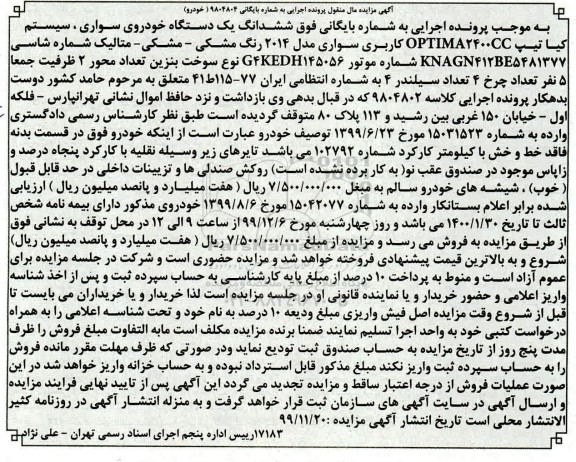 آگهی مزایده مال منقول پرونده اجرایی به شماره بایگانی ۹۸۰۴۸۰۴ ( خودرو)
به موجب پرونده اجرایی به شماره بایگانی فوق ششدانگ یک دستگاه خودروی سواری ، سیستم
کیا تیپ OPTIMA۲۴۰۰CC کاربری سواری مدل ۲۰۱۴ رنگ مشکی - مشکی- متالیک شماره شاسی
KNAGN۴۱۲BE۵۴۸۱۳۷۷ شماره موتور G۴KEDH۱۴۵۰۵۶ نوع سوخت بنزین تعداد محور ۲ ظرفیت جمعا
۵ نفر تعداد چرخ ۴ تعداد سیلندر ۴ به شماره انتظامی ایران ۷۷-۱۱۵ط۴۱ متعلق به مرحوم حامد کشور دوست
بدهکار پرونده اجرایی کلاسه ۹۸۰۴۸۰۲ که در قبال بدهی وی بازداشت و نزد حافظ اموال نشانی تهرانپارس - فلکه
اول - خیابان ۱۵۰ غربی بین رشید و ۱۱۳ پلاک ۸۰ متوقف گردیده است طبق نظر کارشناس رسمی دادگستری
وارده به شماره ۱۵۰۳۱۵۲۳ مورخ ۱۳۹۹/۶/۲۳ توصیف خودرو عبارت است از اینکه خودرو فوق در قسمت بدنه
فاقد خط و خش با کیلومتر کارکرد شماره ۱۰۲۷۹۲ می باشد تایرهای زیر وسیله نقلیه با کارکرد پنجاه درصد و
زاپاس موجود در صندوق عقب نو( به کار برده نشده است) روکش صندلی ها و تزیینات داخلی در حد قابل قبول
( خوب) ، شیشه های خودرو سالم به مبلغ ۷/۵۰۰/۰۰۰/۰۰۰ ریال ( هفت میلیارد و پانصد میلیون ریال ) ارزیابی
شده برابر اعلام بستانکار وارده به شماره ۱۵۰۴۲۰۷۷ مورخ ۱۳۹۹/۸/۶ خودروی مذکور دارای بیمه نامه شخص
ثالث تا تاریخ ۱۴۰۰/۱/۳۰ می باشد و روز چهارشنبه مورخ ۹۹/۱۲/۶ از ساعت ۹ الی ۱۲ در محل توقف به نشانی فوق
از طریق مزایده به فروش می رسد و مزایده از مبلغ ۷/۵۰۰/۰۰۰/۰۰۰ ریال ( هفت میلیارد و پانصد میلیون ریال)
شروع و به بالاترین قیمت پیشنهادی فروخته خواهد شد و مزایده حضوری است و شرکت در جلسه مزایده برای
عموم آزاد است و منوط به پرداخت ۱۰ درصد از مبلغ پایه کارشناسی به حساب سپرده ثبت و پس از اخذ شناسه
واریز اعلامی و حضور خریدار و یا نماینده قانونی او در جلسه مزایده است لذا خریدار و یا خریداران می بایست تا
قبل از شروع وقت مزایده اصل فیش واریزی مبلغ ودیعه ۱۰ درصد به نام خود و تحت شناسه اعلامی را به همراه
درخواست کتبی خود به واحد اجرا تسلیم نمایند ضمنا برنده مزایده مکلف است مابه التفاوت مبلغ فروش را ظرف
مدت پنج روز از تاریخ مزایده به حساب صندوق ثبت تودیع نماید ودر صورتی که ظرف مهلت مقرر مانده فروش
را به حساب سپرده ثبت واریز نکند مبلغ مذکور قابل استرداد نبوده و به حساب خزانه واریز خواهد شد در این
صورت عملیات فروش از درجه اعتبار ساقط و مزایده تجدید می گردد این آگهی پس از تایید نهایی فرایند مزایده
و ارسال آگهی در سایت آگهی های سازمان ثبت قرار خواهد گرفت و به منزله انتشار آگهی در روزنامه کثیر
الانتشار محلی است تاریخ انتشار آگهی مزایده :۹۹/۱۱/۲۰
۱۷۱۸۳رییس اداره پنجم اجرای اسناد رسمی تهران - علی نژاد